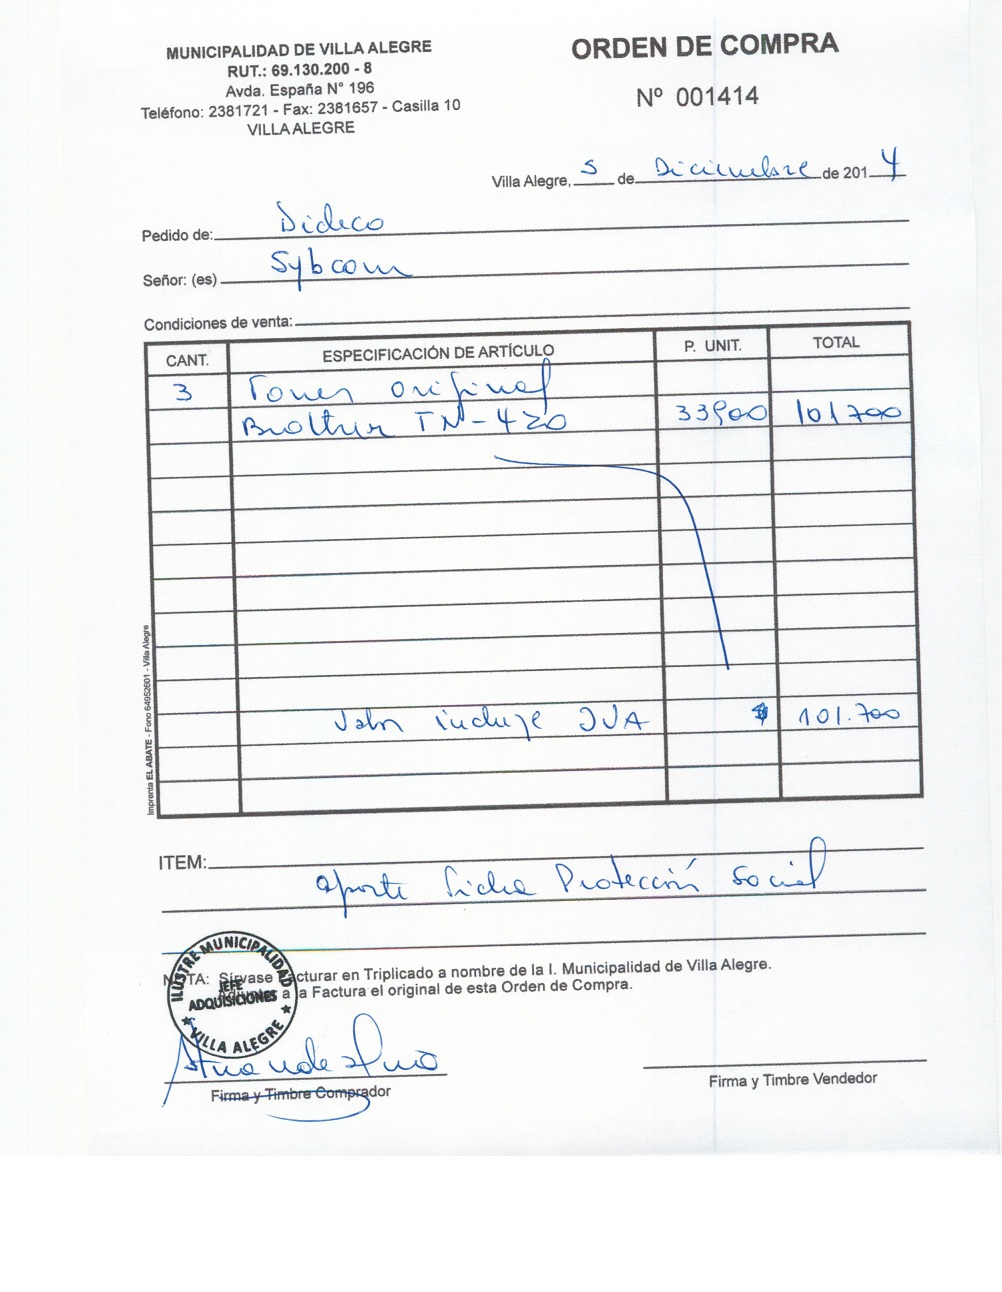 MUNICIPALIDAD DE VILLA ALEGRE
RUT.: 69.130.200 - 8
Avda. España N° 196
Teléfono: 2381721 - Fax: 2381657 - Casilla 10
VILLA ALEGRE
ORDEN DE COMPRA
Nº 001414
Villa Alegre, 5 de Diciembre de 2014
Pedido de: Dideco
Señor: (es) Sybcom
Condiciones de venta:
CANT. ESPECIFICACIÓN DE ARTÍCULO P. UNIT. TOTAL
3 Toner original
Brother TN-420 33900 101700
Valor incluye IVA $ 101.700
Imprenta EL ABATE - Fono 64952601 - Villa Alegre
ITEM:
aporte Ficha Protección Social
NOTA: Sírvase Facturar en Triplicado a nombre de la I. Municipalidad de Villa Alegre.
a la Factura el original de esta Orden de Compra.
ILUSTRE MUNICIPALIDAD
JEFE
ADQUISICIONES
★ VILLA ALEGRE ★
Firma y Timbre Comprador
Firma y Timbre Vendedor